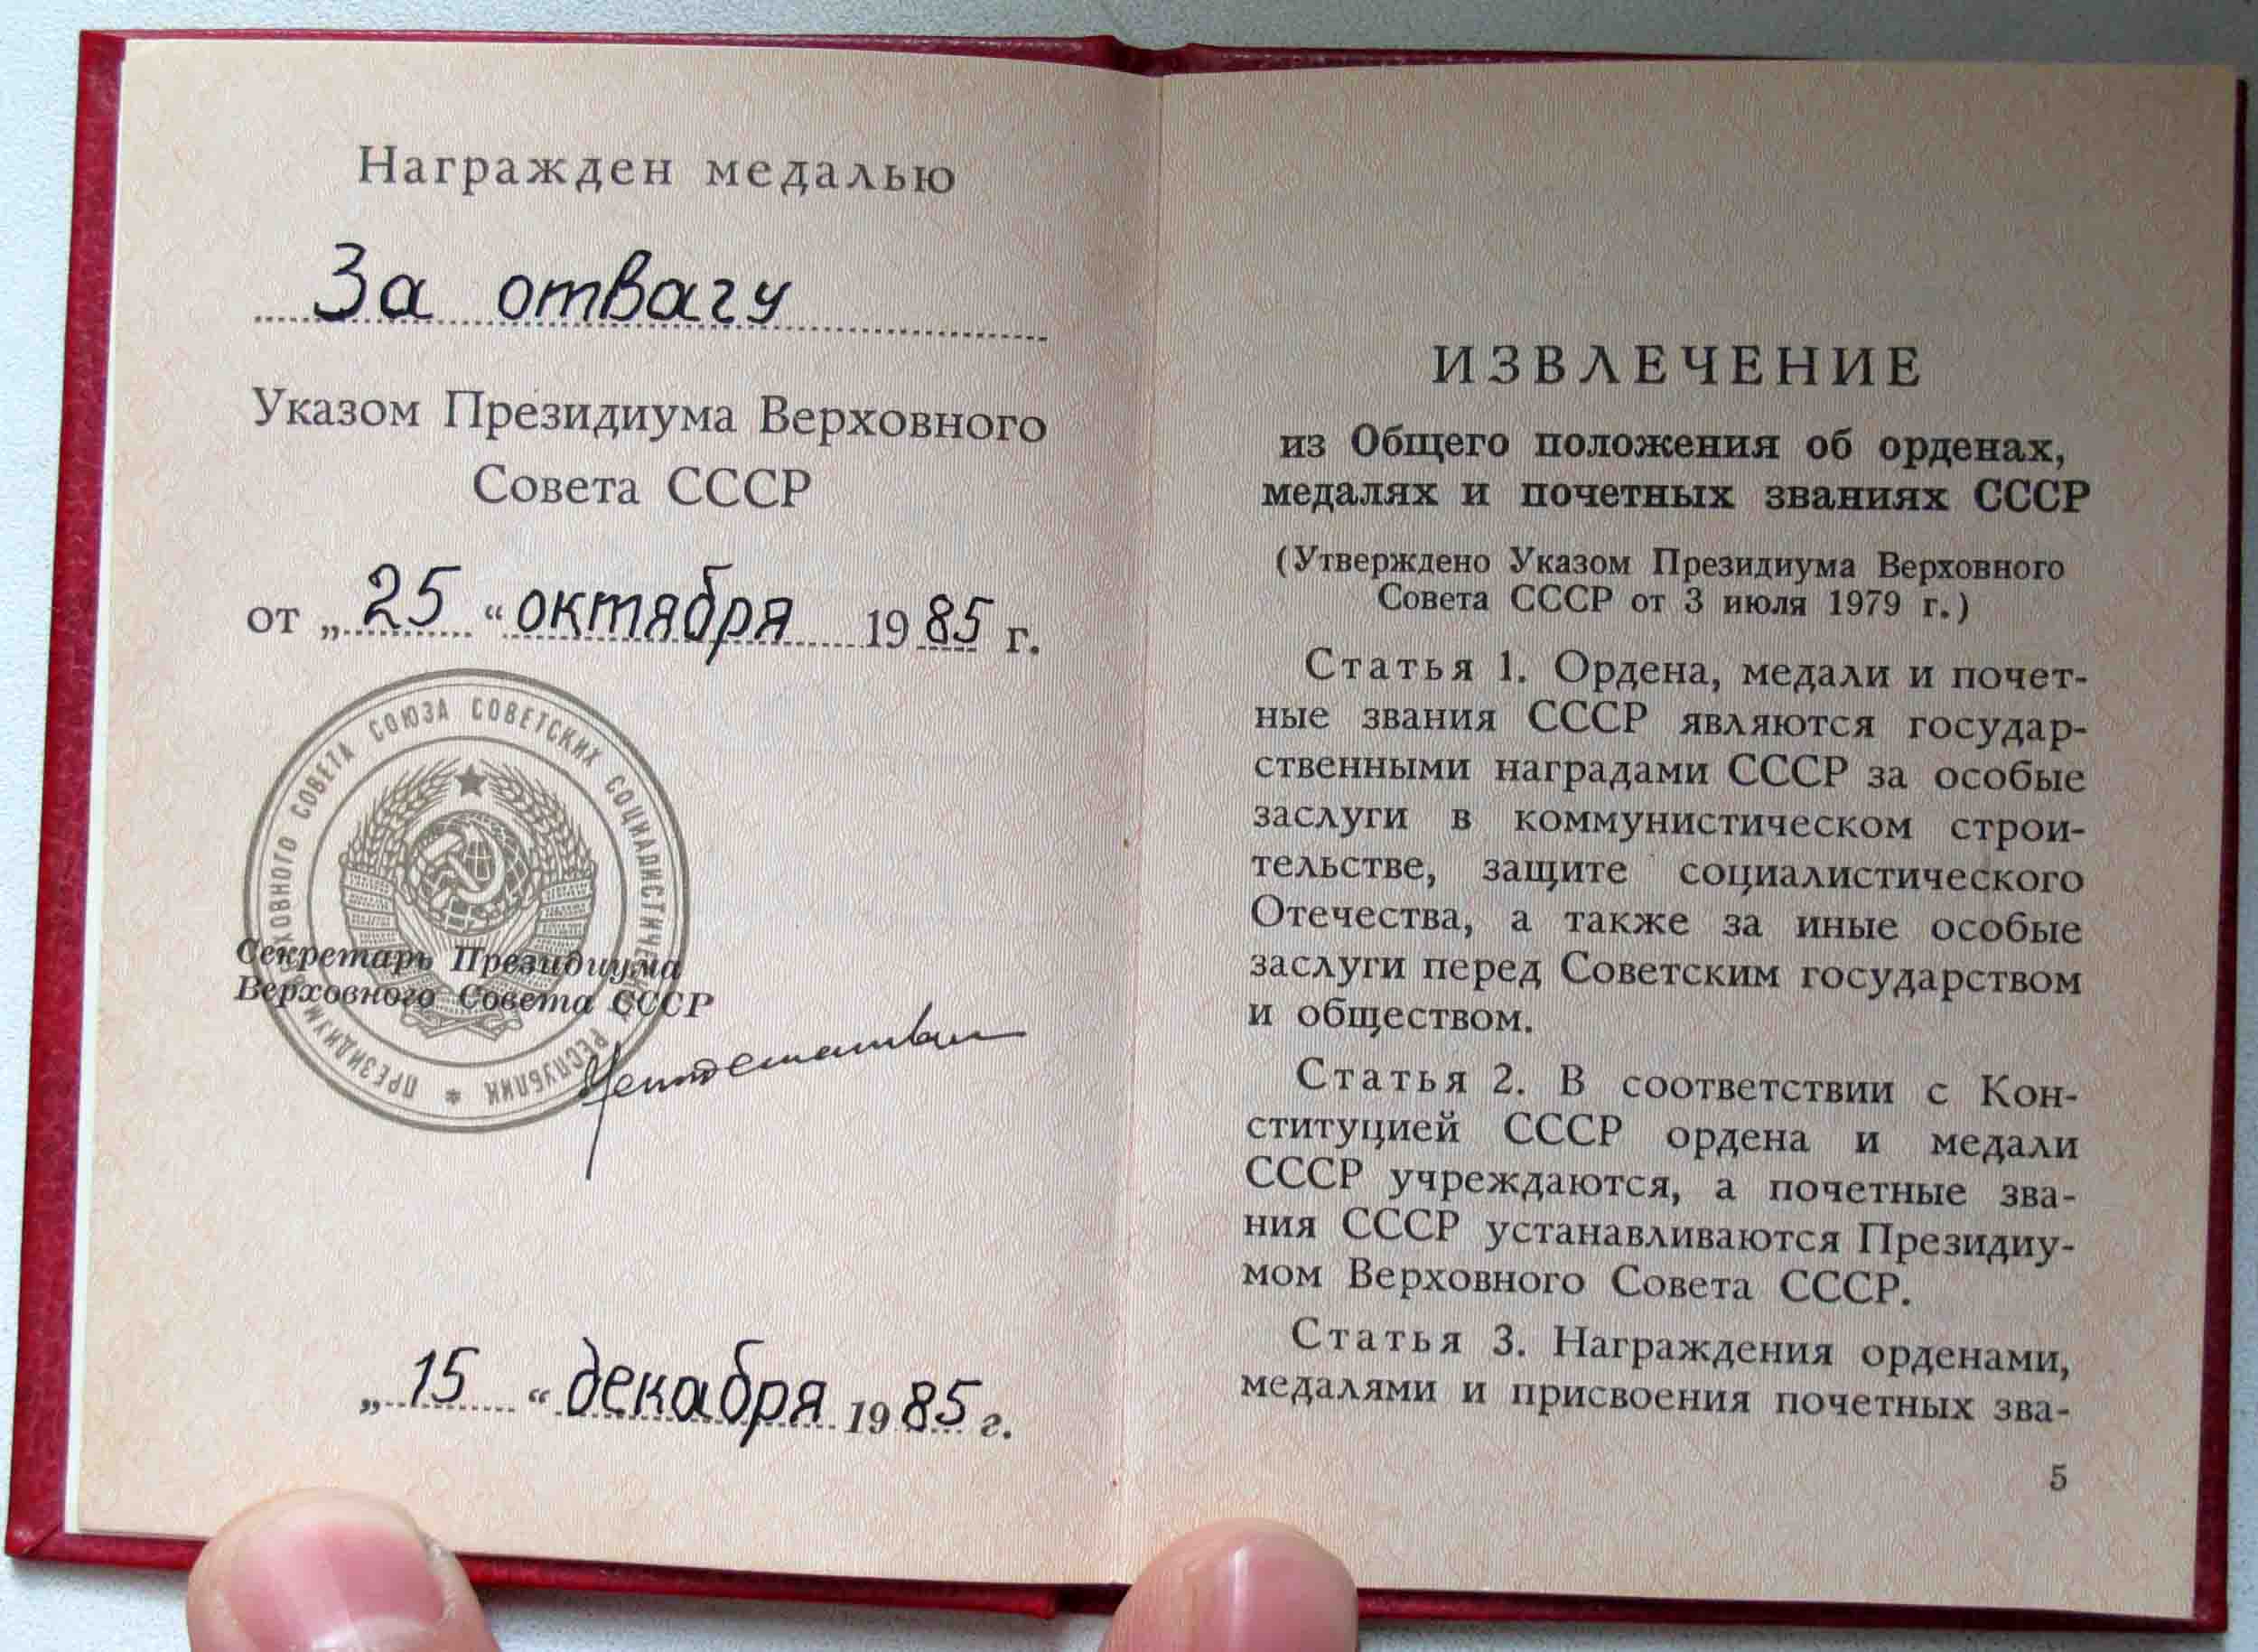 Награжден медалью
За отвагу
Указом Президиума Верховного
Совета СССР
от „25“ октября 1985 г.
ПРЕЗИДИУМ ВЕРХОВНОГО СОВЕТА СОЮЗА СОВЕТСКИХ СОЦИАЛИСТИЧЕСКИХ РЕСПУБЛИК *
Секретарь Президиума
Верховного Совета СССР
„15“ декабря 1985 г.
ИЗВЛЕЧЕНИЕ
из Общего положения об орденах,
медалях и почетных званиях СССР
(Утверждено Указом Президиума Верховного
Совета СССР от 3 июля 1979 г.)
Статья 1. Ордена, медали и почет-
ные звания СССР являются государ-
ственными наградами СССР за особые
заслуги в коммунистическом строи-
тельстве, защите социалистического
Отечества, а также за иные особые
заслуги перед Советским государством
и обществом.
Статья 2. В соответствии с Кон-
ституцией СССР ордена и медали
СССР учреждаются, а почетные зва-
ния СССР устанавливаются Президиу-
мом Верховного Совета СССР.
Статья 3. Награждения орденами,
медалями и присвоения почетных зва-
5